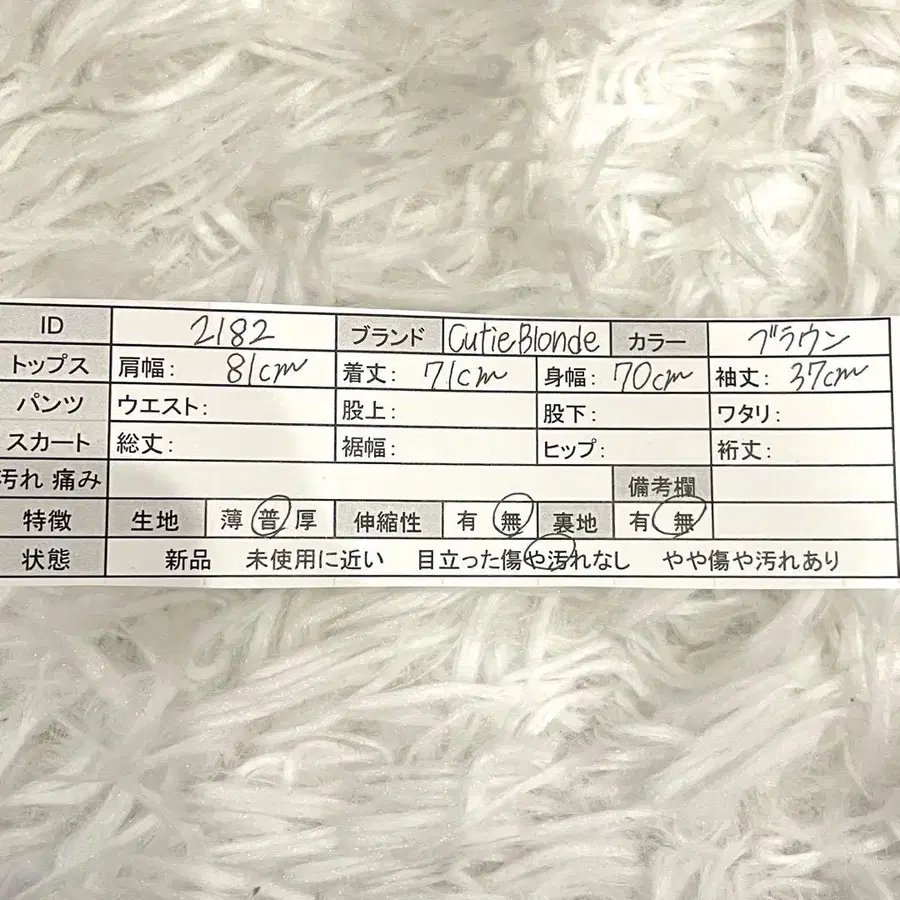 ID 2182 ブランド Cutie Blonde カラー ブラウン
トップス 肩幅: 81cm 着丈: 71cm 身幅: 70cm 袖丈: 37cm
パンツ ウエスト: 股上: 股下: ワタリ:
スカート 総丈: 裾幅: ヒップ: 裄丈:
汚れ 痛み 備考欄
特徴 生地 薄 普 厚 伸縮性 有 無 裏地 有 無
状態 新品 未使用に近い 目立った傷や汚れなし やや傷や汚れあり